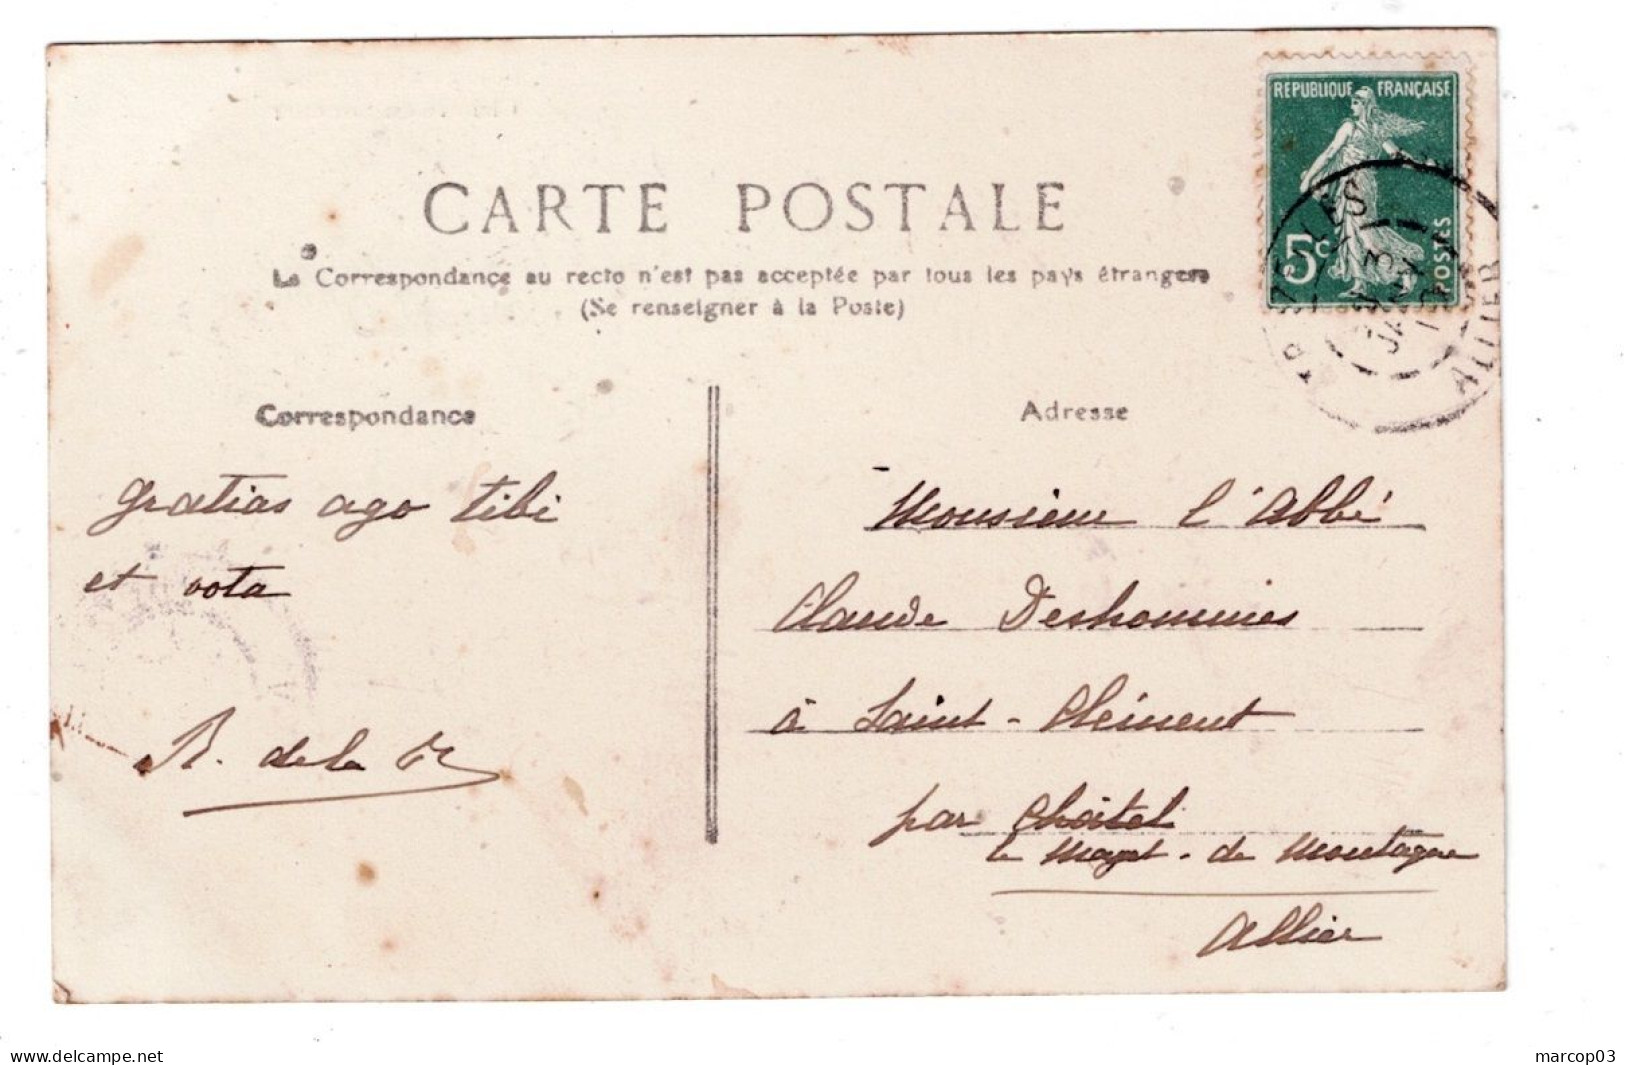 RÉPUBLIQUE FRANÇAISE
5c POSTES
ALLIER
CARTE POSTALE
La Correspondance au recto n'est pas acceptée par tous les pays étrangers
(Se renseigner à la Poste)
Correspondance
gratias ago tibi
et vota
R. de la
Adresse
Monsieur l'Abbé
Claude Deshommes
à Saint-Clément
par Châtel
le Mayet-de Montagne
Allier
www.delcampe.net
marcop03